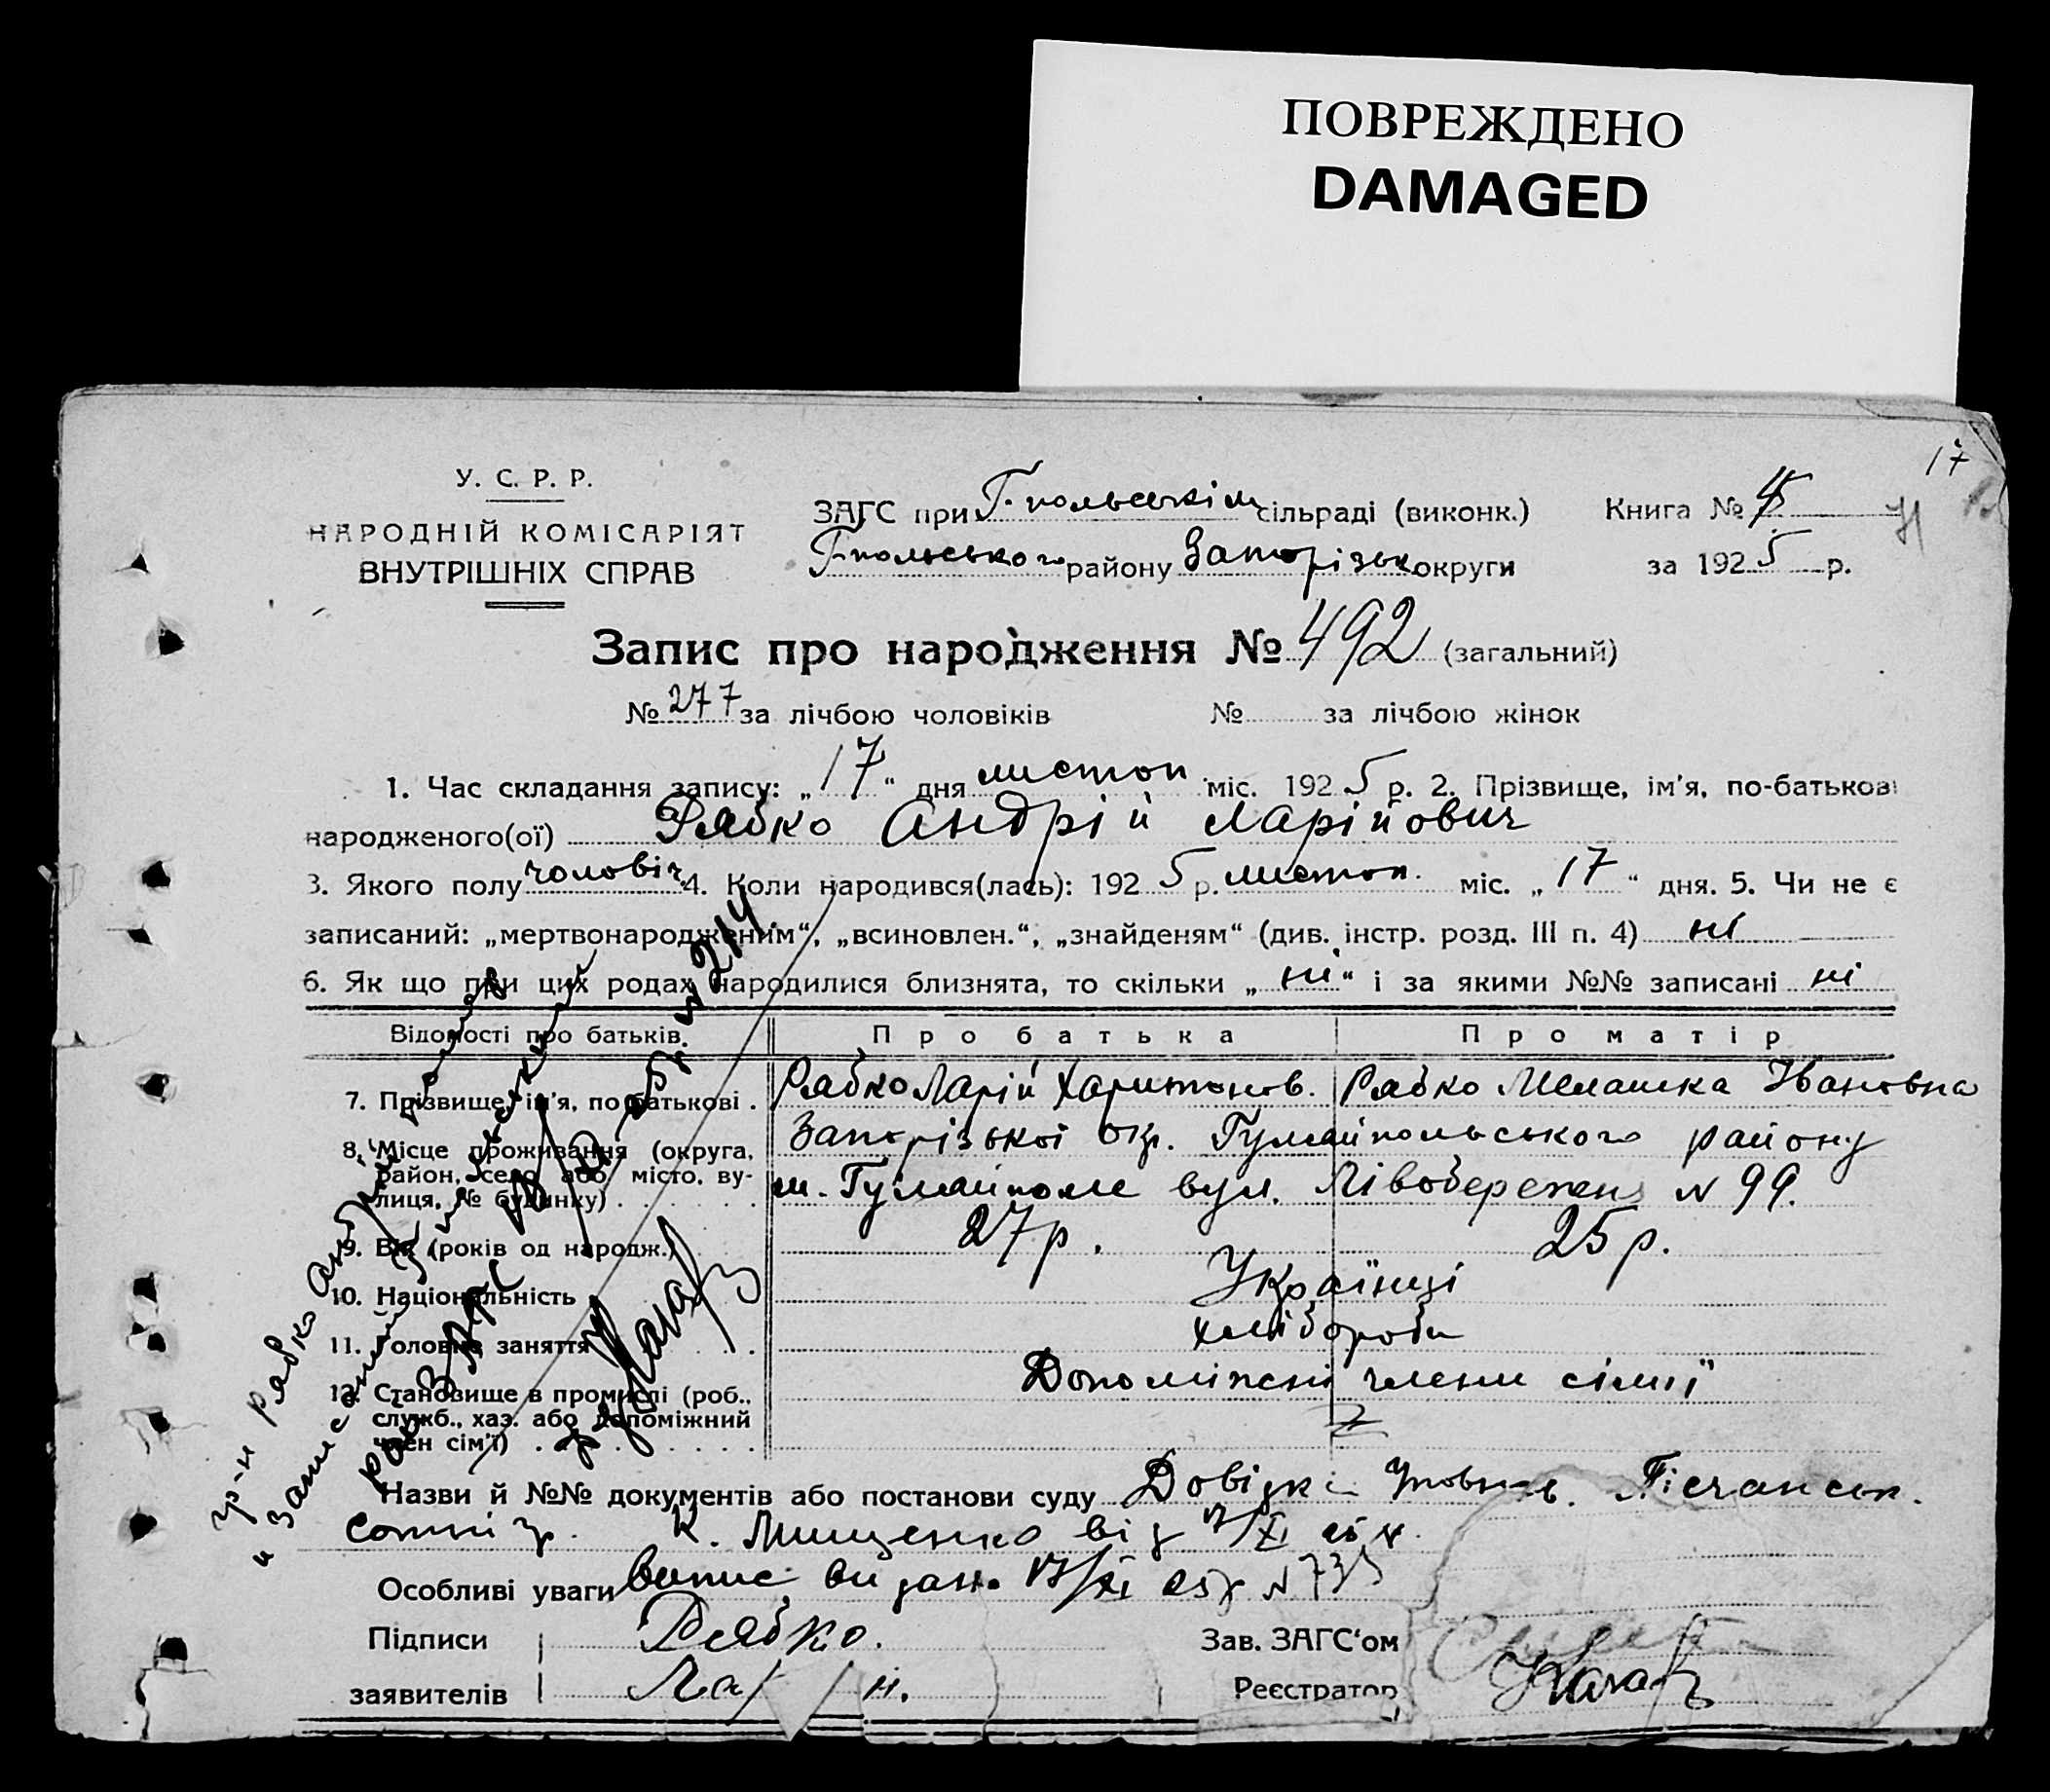 ПОВРЕЖДЕНО
DAMAGED
17
У. С. Р. Р.
НАРОДНІЙ КОМІСАРІЯТ
ВНУТРІШНІХ СПРАВ
ЗАГС при Г-польськім сільраді (виконк.) Книга №
Г-польського району Запорізьк округи за 1925 р.
Запис про народження № 492 (загальний)
№ 277 за лічбою чоловіків № за лічбою жінок
1. Час складання запису: „17“ дня листоп. міс. 1925 р. 2. Прізвище, ім'я, по-батькові
народженого(ої) Рябко Андрій Ларійович
3. Якого полу чоловіч. 4. Коли народився(лась): 1925 р. листоп. міс. „17“ дня. 5. Чи не є
записаний: „мертвонародженим“, „всиновлен.“, „знайденям“ (див. інстр. розд. III п. 4) ні
6. Як що при цих родах народилися близнята, то скільки „ні“ і за якими №№ записані ні
Відомості про батьків. Про батька Про матір
7. Прізвище, ім'я, по батькові . Рябко Ларій Харитонов. Рябко Мелашка Івановна
8. Місце проживання (округа, район, село або місто, вулиця, № будинку) Запорізької окр. Гуляйпольського району
м. Гуляйполе вул. Лівобережна № 99.
9. Вік (років од народж.) 27 р. 25 р.
10. Національність Українці
11. Головне заняття хлібороби
12. Становище в промислі (роб., служб., хаз. або допоміжний член сім'ї) Допоміжні члени сімії
Назви й №№ документів або постанови суду Довідка Уповнов. Пісчанськ.
сотні гр. К. Мищенко від 17/XI 25 р.
Особливі уваги випис видан. 17/XI 25 р. № 735
Підписи Рябко. Зав. ЗАГС'ом
заявителів Ла н. Реєстратор
гр-н Рябко Андрій
записаний
рай ЗАГС